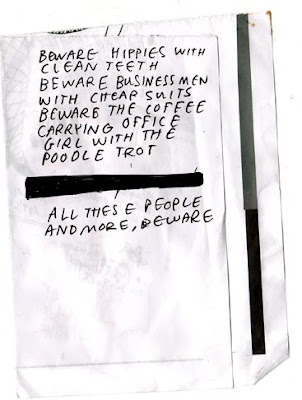 BEWARE HIPPIES WITH
CLEAN TEETH
BEWARE BUSINESSMEN
WITH CHEAP SUITS
BEWARE THE COFFEE
CARRYING OFFICE
GIRL WITH THE
POODLE TROT
ALL THESE PEOPLE
AND MORE, BEWARE